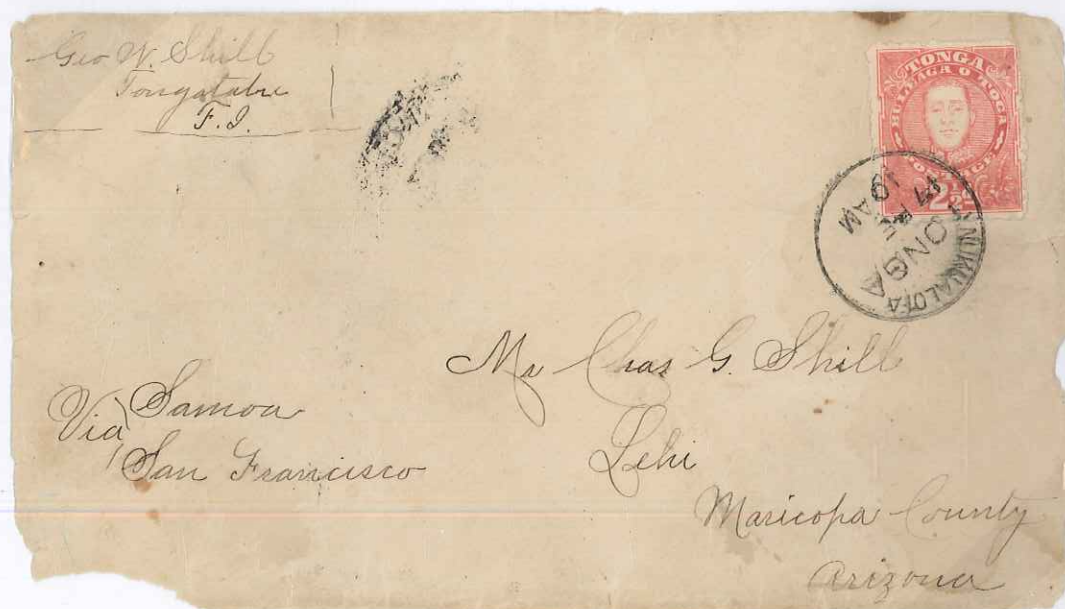 Geo W. Shill
Tongatabu
F. I.
TONGA
BULEAGA O TOGA
POSTAGE
2½
NUKUALOFA
TONGA
10 AM
Mr Chas G. Shill
Lehi
Maricopa County
Arizona
Via Samoa
San Francisco